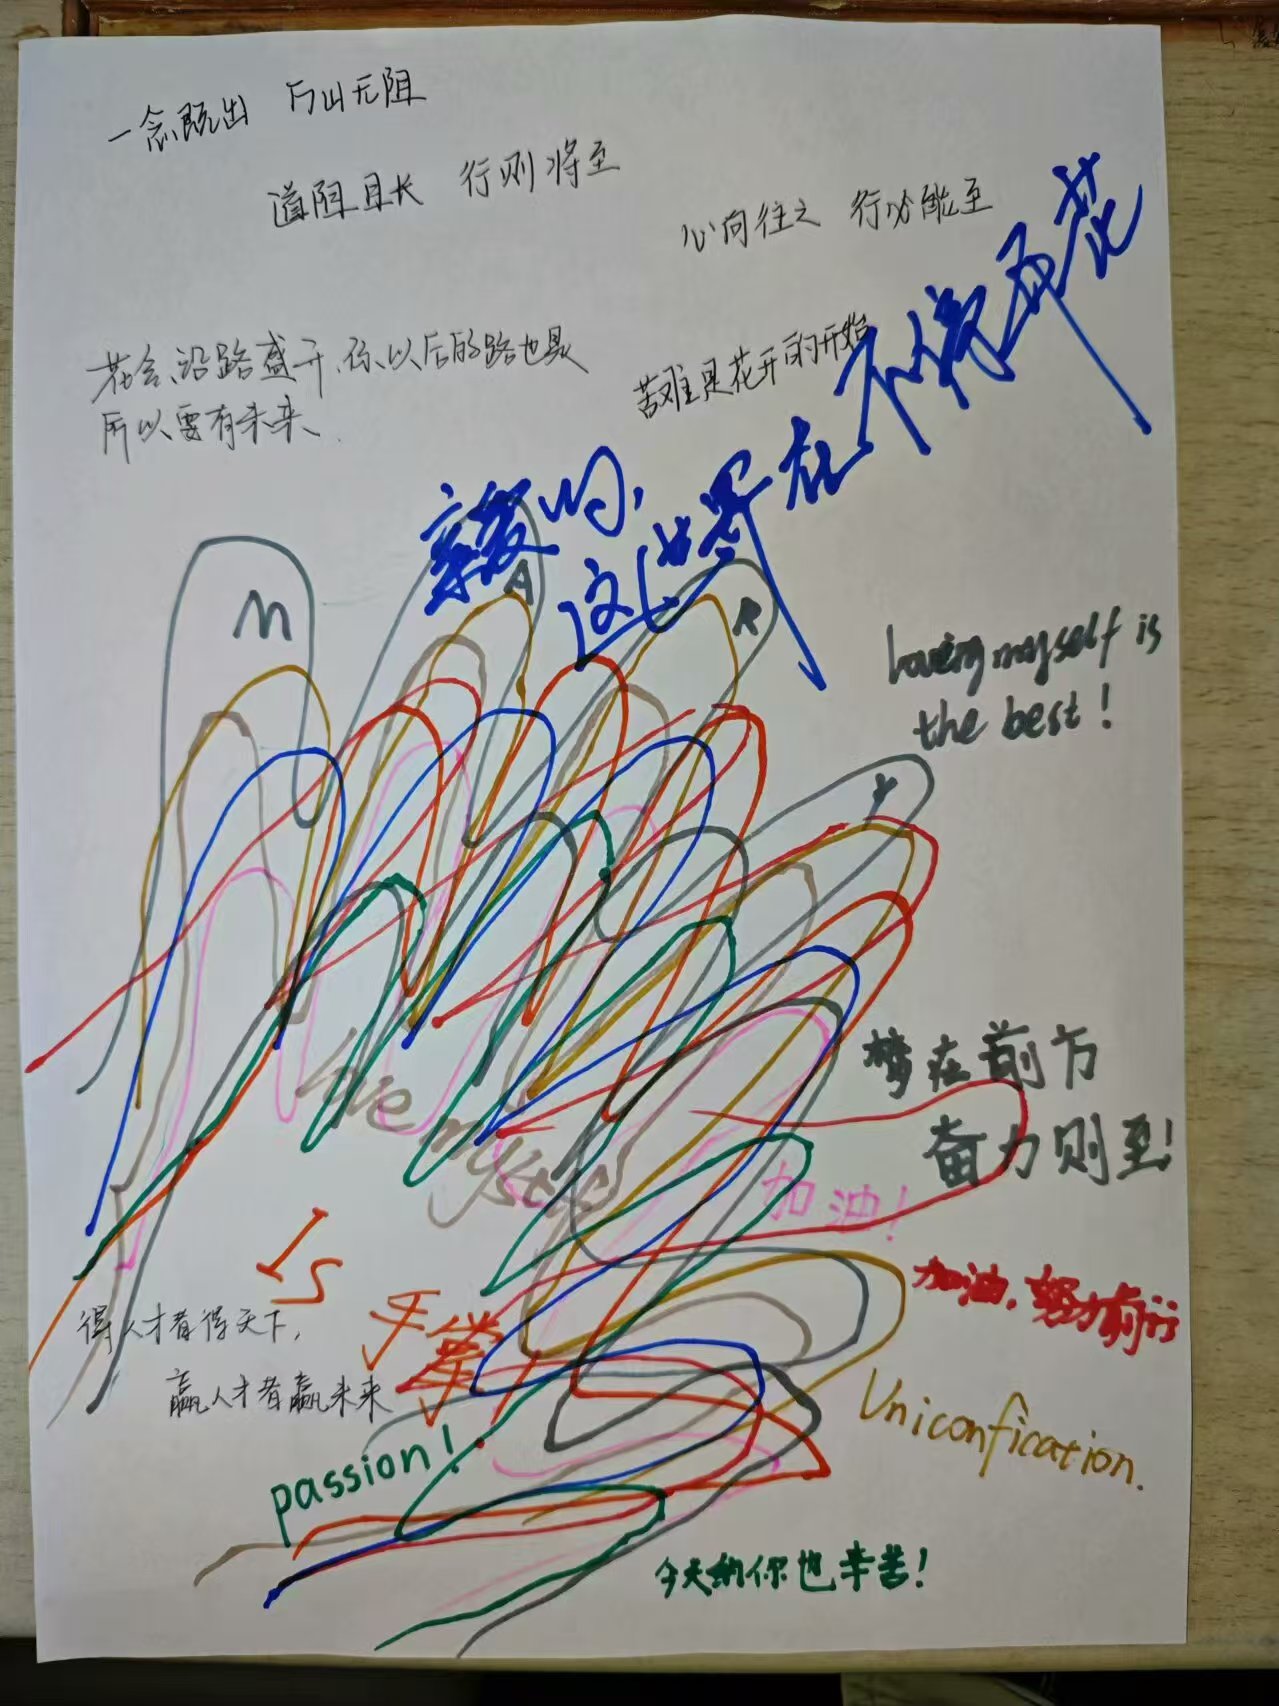 一念既出 万山无阻
道阻且长 行则将至
心向往之 行必能至
花会沿路盛开,你以后的路也是
所以要有未来
苦难是花开的开始
亲爱的,
这世界在不停开花
M
A
R
Y
loving myself is
the best!
love myself
梦在前方
奋力则至!
加油!
Is
手掌
加油,努力前行
得人才者得天下,
赢人才者赢未来
Uniconfication.
passion!
今天的你也辛苦!